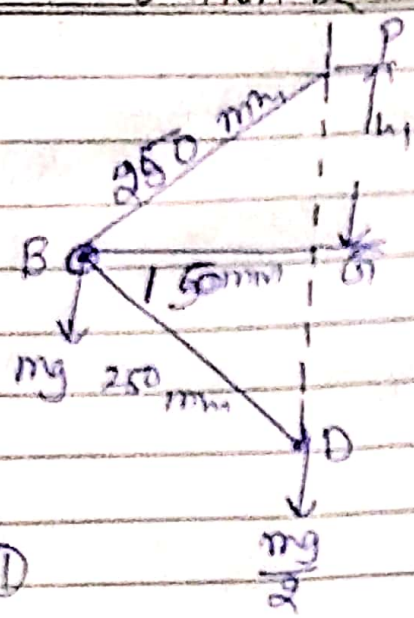 P
250 mm
h1
B
150mm
G
mg
250 mm
D
mg
2